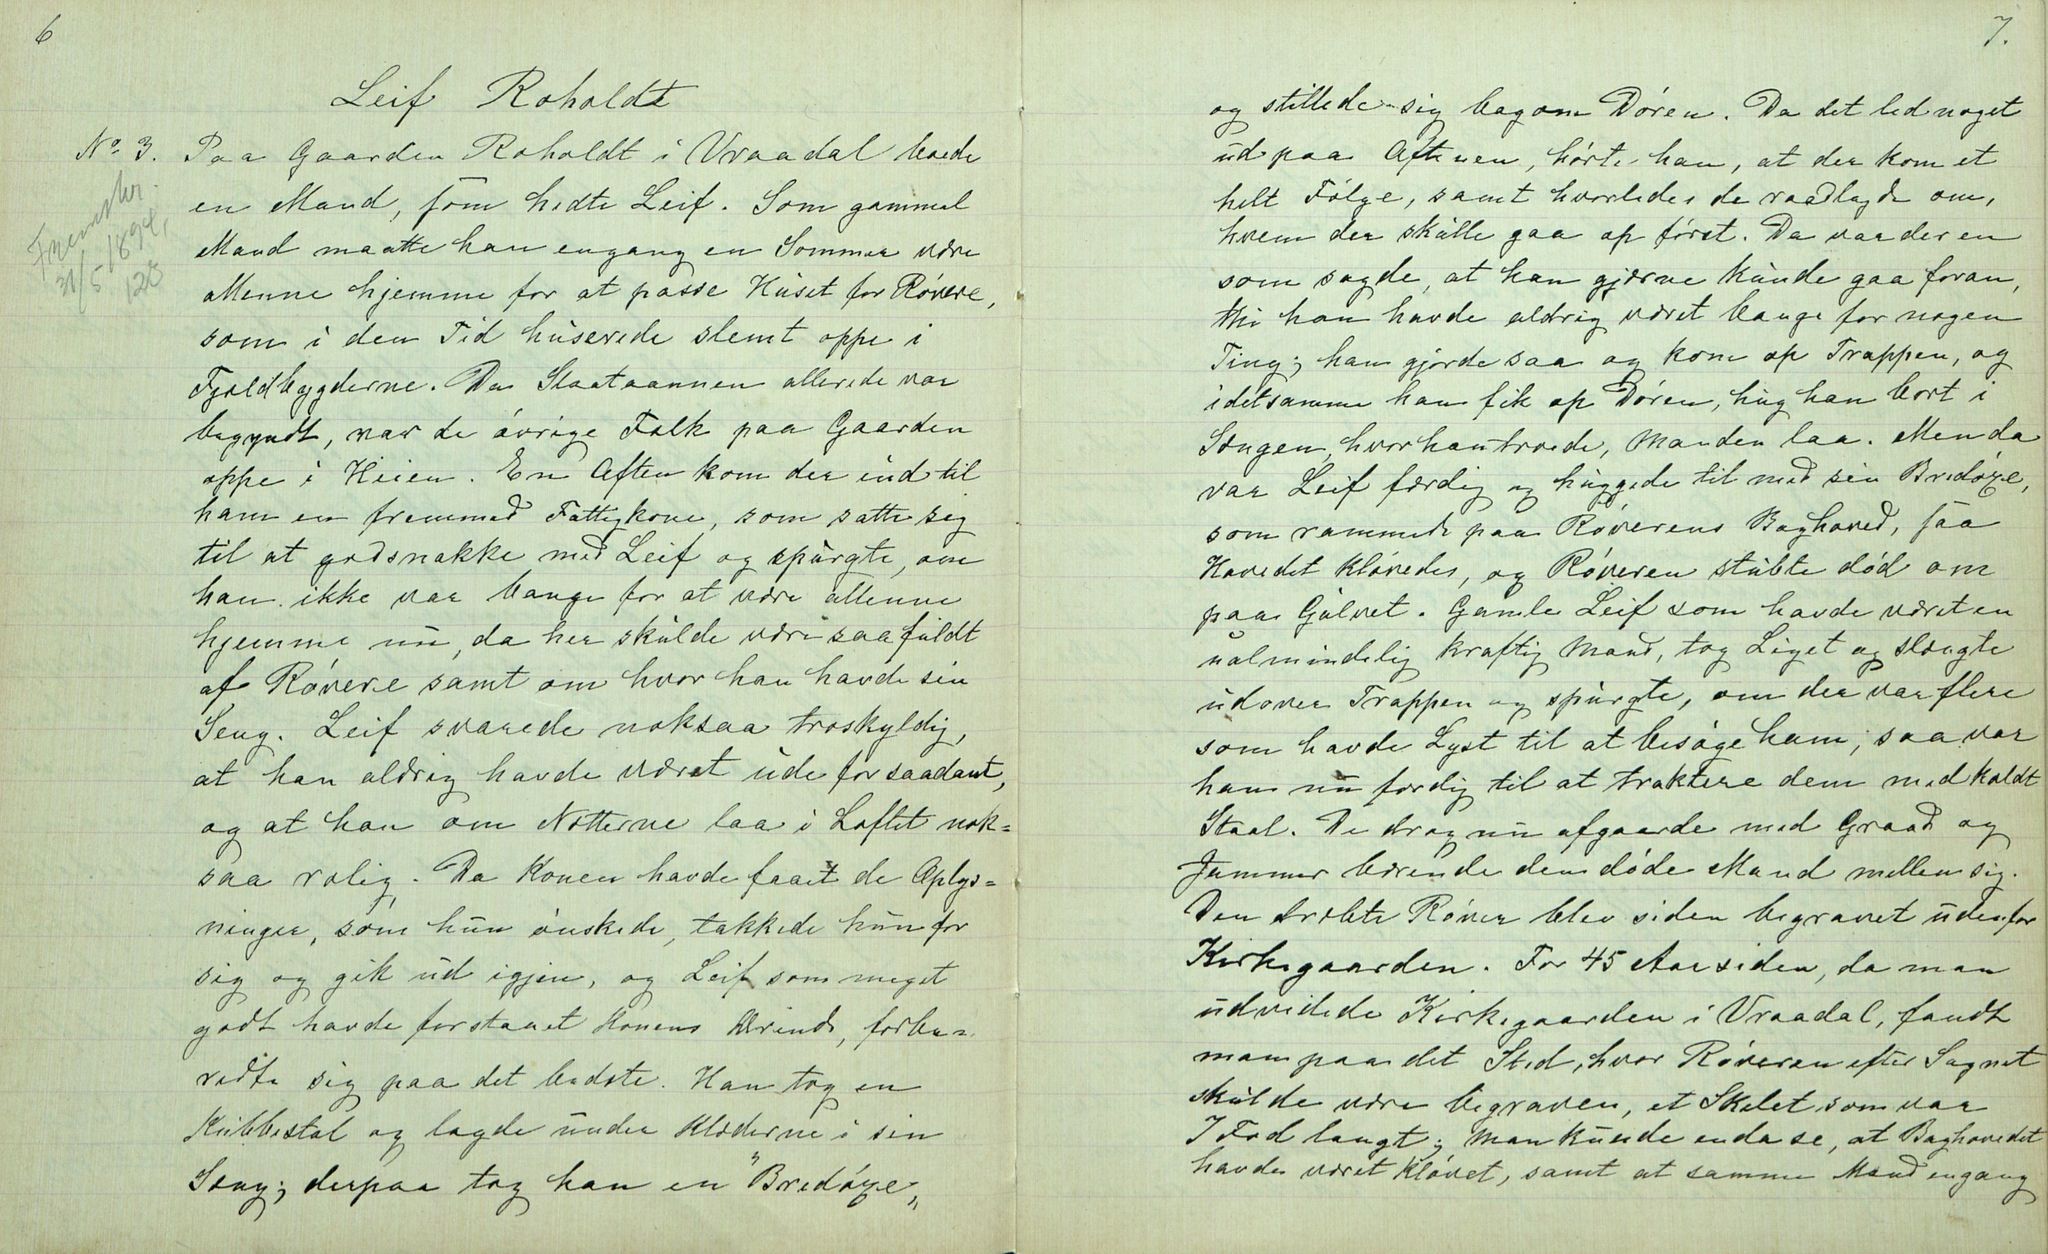 6
Leif Roholdt
No. 3. Paa Gaarden Roholdt i Vraadal boede
en Mand, som hedte Leif. Som gammel
Mand maatte han engang en Sommer være
allene hjemme for at passe Huset for Røvere,
som i den Tid huserede slemt oppe i
Fjeldbygderne. Da Slaataannen allerede var
begyndt, var de øvrige Folk paa Gaarden
oppe i Heien. En Aften kom der ind til
ham en fremmed Fattigkone, som satte sig
til at godsnakke med Leif og spurgte, om
han ikke var bange for at være allenne
hjemme nu, da her skulde være saa fuldt
af Røvere samt om hvor han havde sin
Seng. Leif svarede noksaa troskyldig,
at han aldrig havde været ude for saadant,
og at han om Nætterne laa i Loftet nok=
saa rolig. Da Konen havde faaet de Oplys=
ninger, som hun ønskede, takkede hun for
sig og gik ud igjen, og Leif som meget
godt havde forstaaet Konens Ærinde, forbe=
redte sig paa det bedste. Han tog en
Kubbestol og lagde under Klæderne i sin
Seng; derpaa tog han en "Bredøxe„
Fremskr.
21/5 1894,
128
7.
og stillede sig bagom Døren. Da det led noget
ud paa Aftenen, hørte han, at der kom et
helt Følge, samt hvorledes de raadlagde om,
hvem der skulle gaa op først. Da var der en
som sagde, at han gjærne kunde gaa foran,
thi han havde aldrig været bange for nogen
Ting; han gjorde saa og kom op Trappen, og
idetsamme han fik op Døren, hug han bort i
Sengen, hvor han troede, Manden laa. Men da
var Leif færdig og huggede til med sin Bredøxe,
som rammede paa Røverens Baghoved, saa
Hovedet kløvedes, og Røveren stubte død om
paa Gulvet. Gamle Leif som havde været en
ualmindelig kraftig Mand, tog Liget og slængte
udover Trappen og spurgte, om der var flere
som havde Lyst til at besøge ham; saa var
han nu færdig til at traktere dem med koldt
Staal. De drog nu afgaarde med Graad og
Jammer bærende den døde Mand mellem sig.
Den dræbte Røver blev siden begravet udenfor
Kirkegaarden. For 45 Aar siden, da man
udvidede Kirkegaarden i Vraadal, fandt
man paa det Sted, hvor Røveren efter Sagnet
skulde være begraven, et Skelet som var
7 Fod langt; man kunde enda se, at Baghovedet
havde været kløvet, samt at samme Mand engang